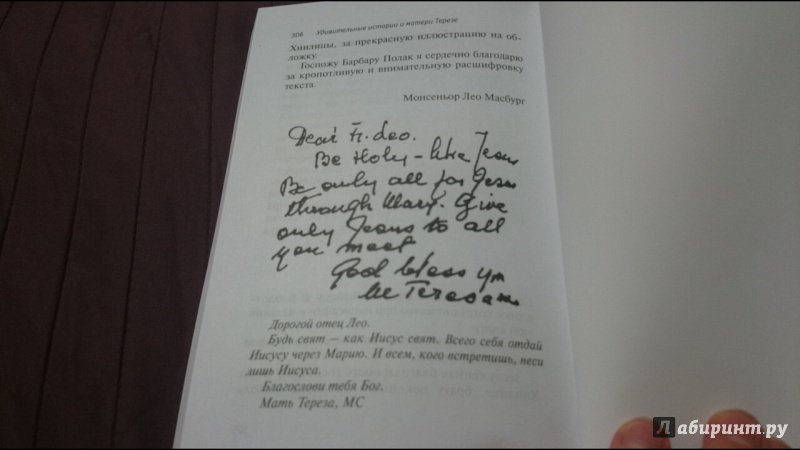 306 Удивительные истории о матери Терезе
Хнилицы, за прекрасную иллюстрацию на об-
ложку.
Госпожу Барбару Полак я сердечно благодарю
за кропотливую и внимательную расшифровку
текста.
Монсеньор Лео Масбург
Dear Fr. Leo.
Be Holy – like Jesus
Be only all for Jesus
through Mary. Give
only Jesus to all
you meet
God bless you
Дорогой отец Лео.
Будь свят — как Иисус свят. Всего себя отдай
Иисусу через Марию. И всем, кого встретишь, неси
лишь Иисуса.
Благослови тебя Бог.
Мать Тереза, МС
Лабиринт.ру